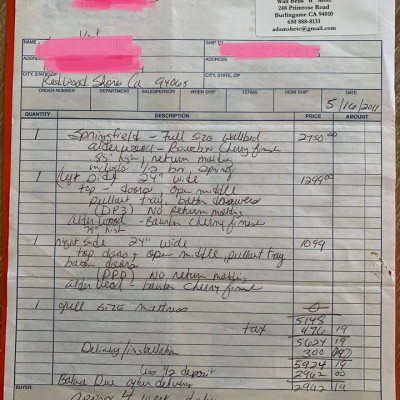 Wall Beds "n" More
248 Primrose Road
Burlingame CA 94010
650 888-8131
NAME
SHIP TO
ADDRESS
ADDRESS
CITY, STATE, ZIP
Redwood Shores Ca 94065
CITY, STATE, ZIP
ORDER NUMBER DEPARTMENT SALESPERSON WHEN SHIP TERMS HOW SHIP
5/16/2011
QUANTITY DESCRIPTION PRICE AMOUNT
1 Springfield - Full size wallbed 2750.00
alderwood - Bourbon Cherry finish
85" high, return molding
includes 1/2 box spring
1 left side 24" wide 1299.00
top - doors open middle
pullout tray, bottom drawers
(DP3) NO Return molding
alder wood - Bourbon Cherry finish
79" high
1 right side 24" wide 1099
top doors + open middle, pullout tray
bottom doors
(DPD) NO return molding
alder wood - Bourbon Cherry finish
1 full size mattress 0
5148
tax 476 19
5624 19
Delivery/installation 300
5924 19
less 1/2 deposit 2962 00
Balance Due after delivery 2962 19
BUYER:
approx 4 week